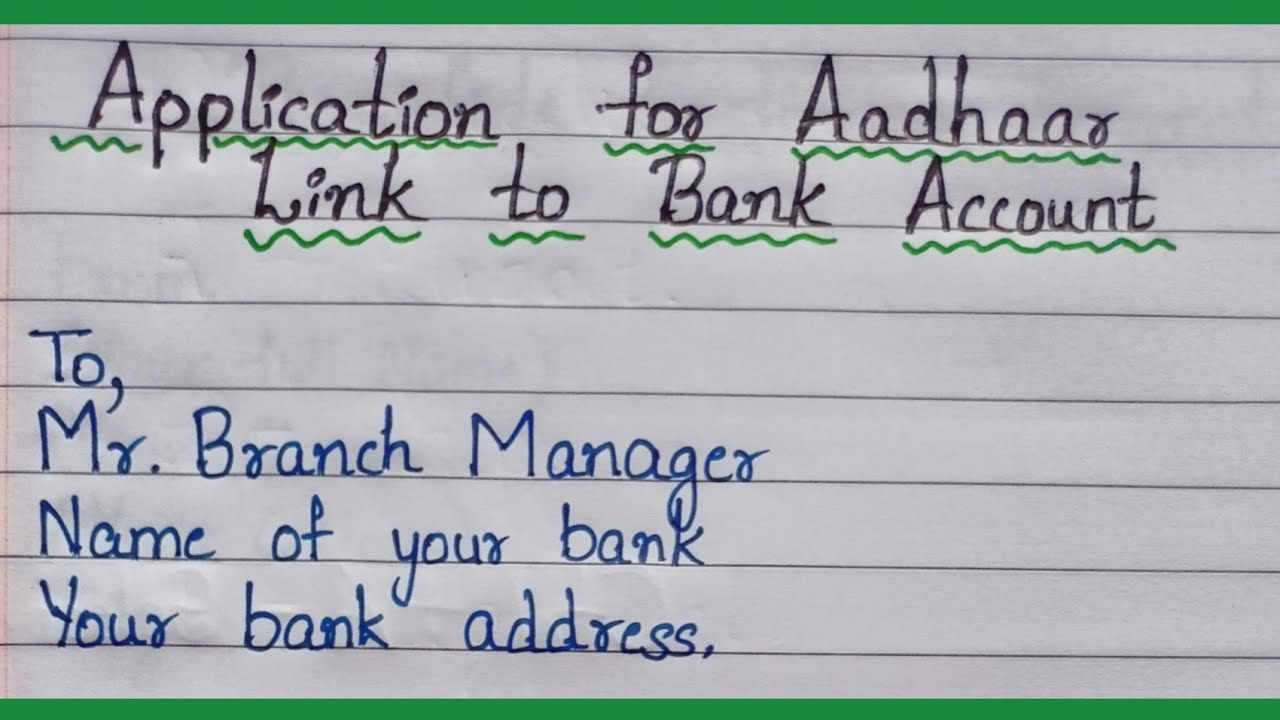 Application for Aadhaar
Link to Bank Account
To,
Mr. Branch Manager
Name of your bank
Your bank address.